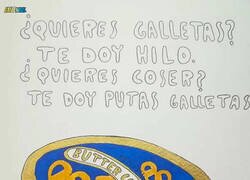 ¿QUIERES GALLETAS?
TE DOY HILO.
¿QUIERES COSER?
TE DOY PUTAS GALLETAS
BUTTER CO